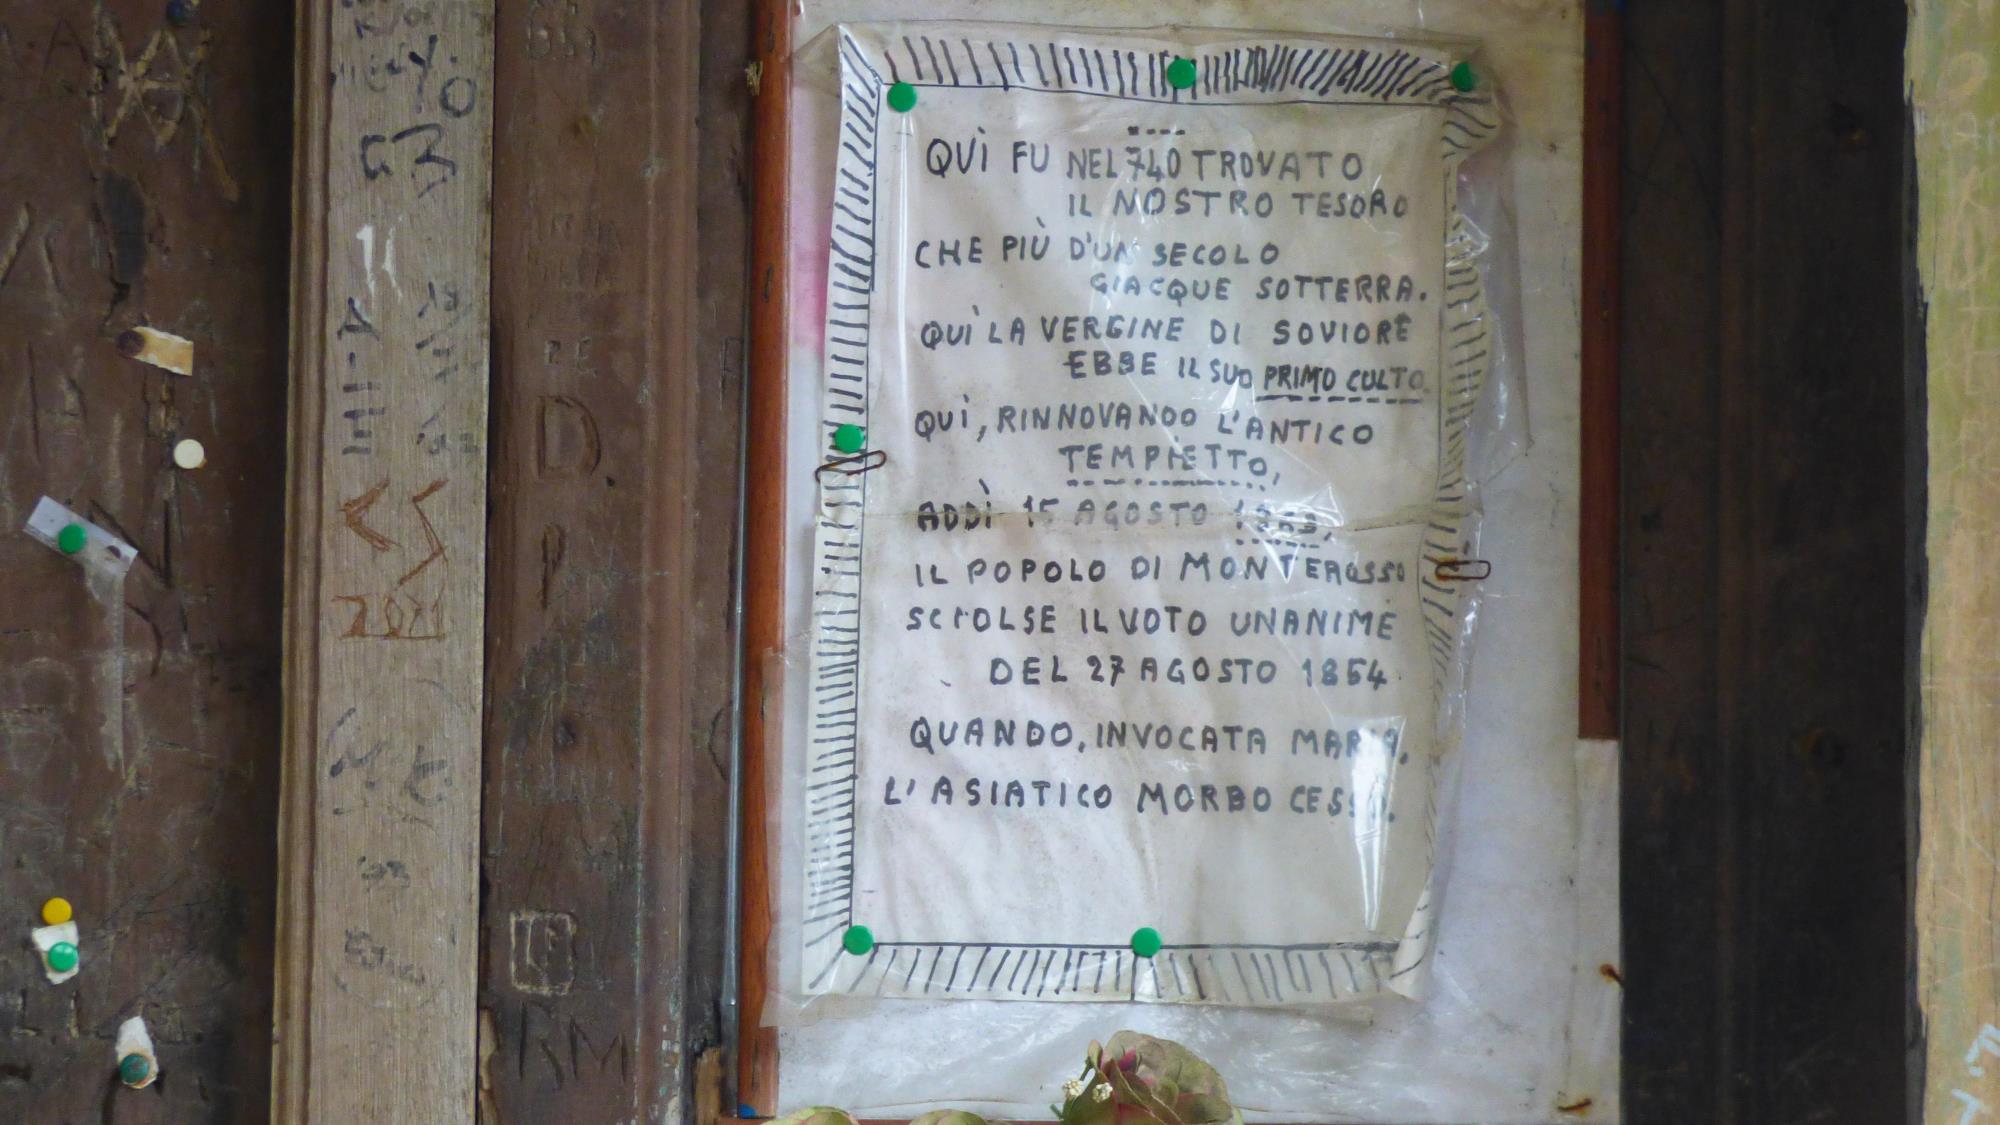 QUÌ FU NEL 740 TROVATO
IL NOSTRO TESORO
CHE PIÙ D'UN SECOLO
GIACQUE SOTTERRA.
QUÌ LA VERGINE DI SOVIORE
EBBE IL SUO PRIMO CULTO.
QUÌ, RINNOVANDO L'ANTICO
TEMPIETTO,
ADDÌ 15 AGOSTO
IL POPOLO DI MONTEROSSO
SCIOLSE IL VOTO UNANIME
DEL 27 AGOSTO 1854
QUANDO, INVOCATA MARIA,
L'ASIATICO MORBO CESSÒ.
RE
D.
KM
2021